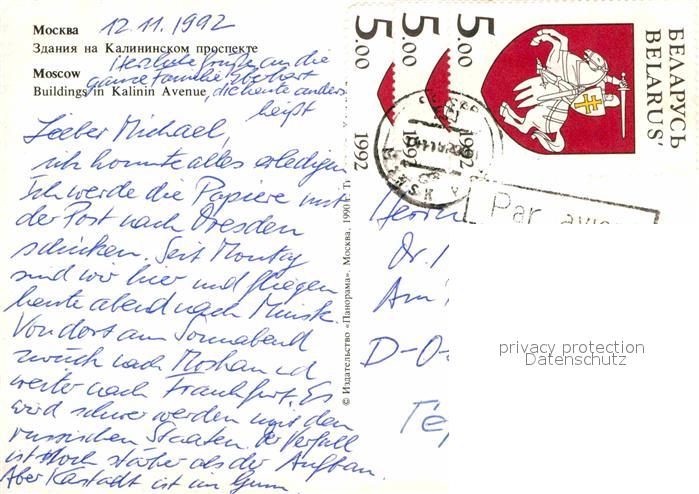 Москва 12.11.1992
Здания на Калининском проспекте
Herzliche Grüße an die
Moscow ganze Familie
Buildings in Kalinin Avenue, die heute anders
heißt
Lieber Michael,
ich konnte alles erledigen
Ich werde die Papiere mit
der Post nach Dresden
schicken. Seit Montag
sind wir hier und fliegen
heute abend nach Minsk.
Von dort am Sonnabend
zurück nach Moskau und
weiter nach Frankfurt. Es
wird schwer werden mit den
russischen Staaten. Der Verfall
ist noch stärker als der Aufbau.
Aber Karstadt ist im Gum.
© Издательство «Панорама». Москва, 1990 г.
5.00
5.00
5.00
БЕЛАРУСЬ
BELARUS'
1992
1992
1992
Par avion
Herrn
Dr.
Am
D-O-
privacy protection
Datenschutz